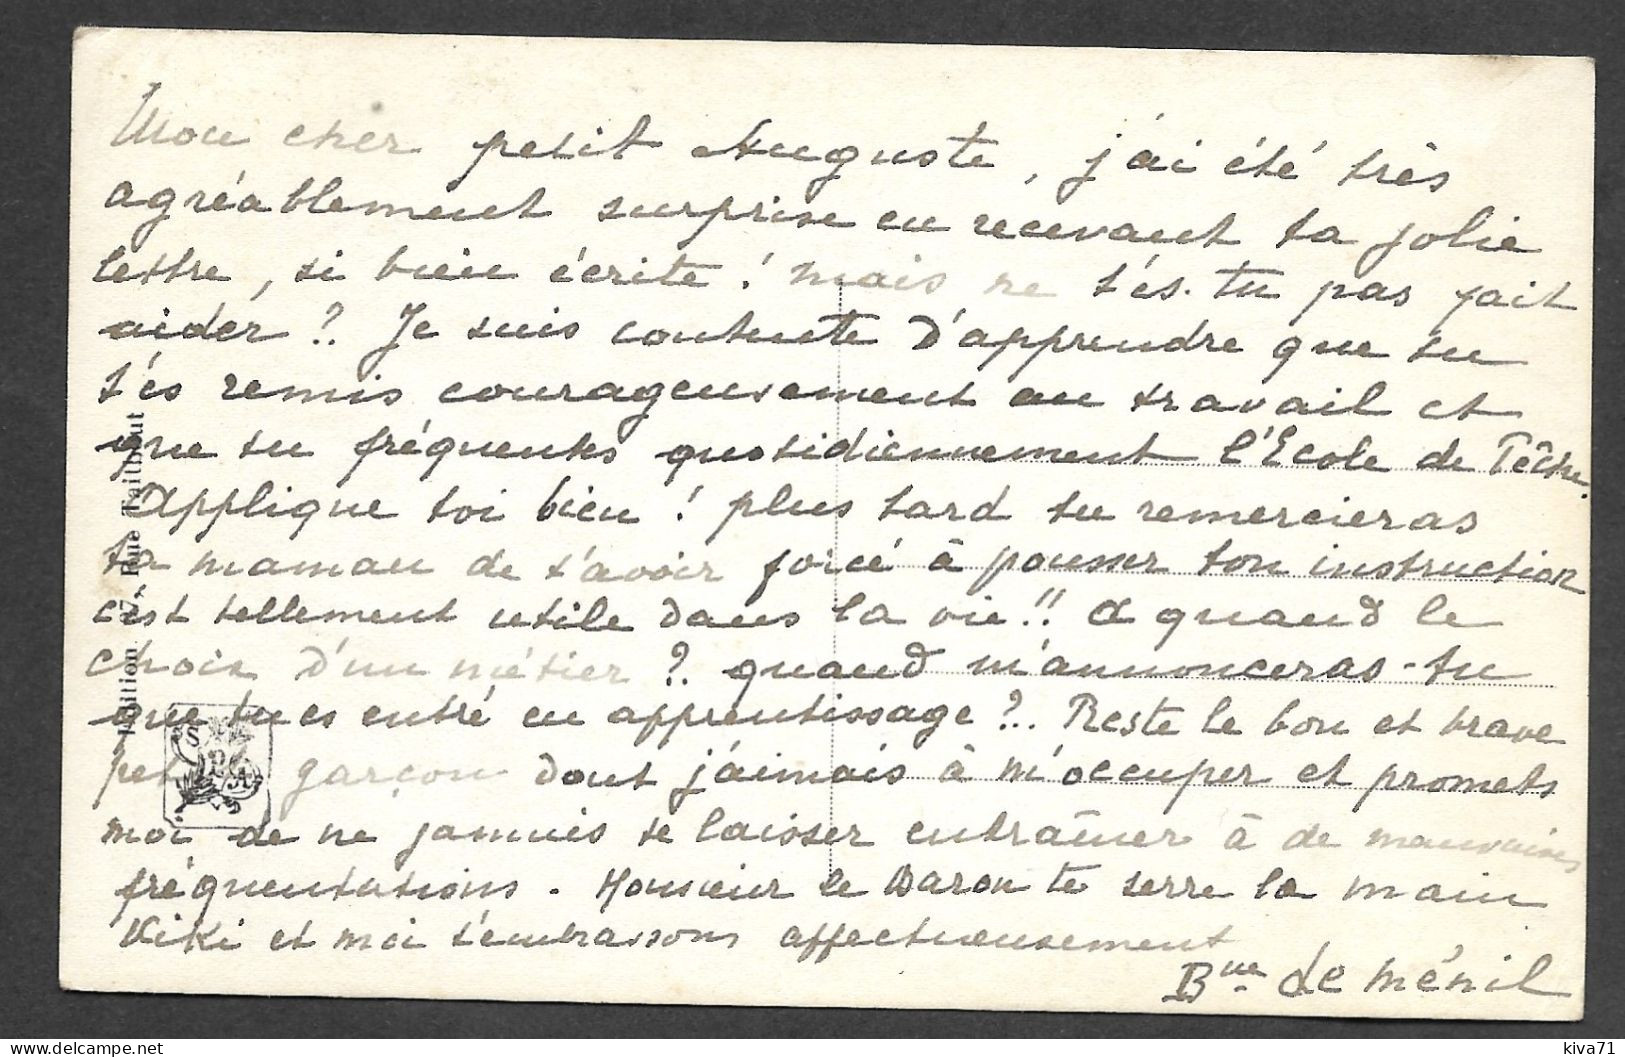 Mon cher petit Auguste, j'ai été très
agréablement surprise en recevant ta jolie
lettre, si bien écrite ! mais ne t'és-tu pas fait
aider ? Je suis contente d'apprendre que tu
t'és remis courageusement au travail et
que tu fréquentes quotidiennement l'École de Pêche.
Applique toi bien ! plus tard tu remercieras
ta maman de t'avoir forcé à pousser ton instruction
c'est tellement utile dans la vie !! à quand le
choix d'un métier ? quand m'annonceras-tu
que tu es entré en apprentissage ?.. Reste le bon et brave
garçon dont j'aimais à m'occuper et promets
moi de ne jamais te laisser entraîner à de mauvaises
fréquentations. Monsieur le Baron te serre la main
Kiki et moi t'embrassons affectueusement
Bne de Ménil
Edition Rue Faithbout
S P A
delcampe.net
kiva71